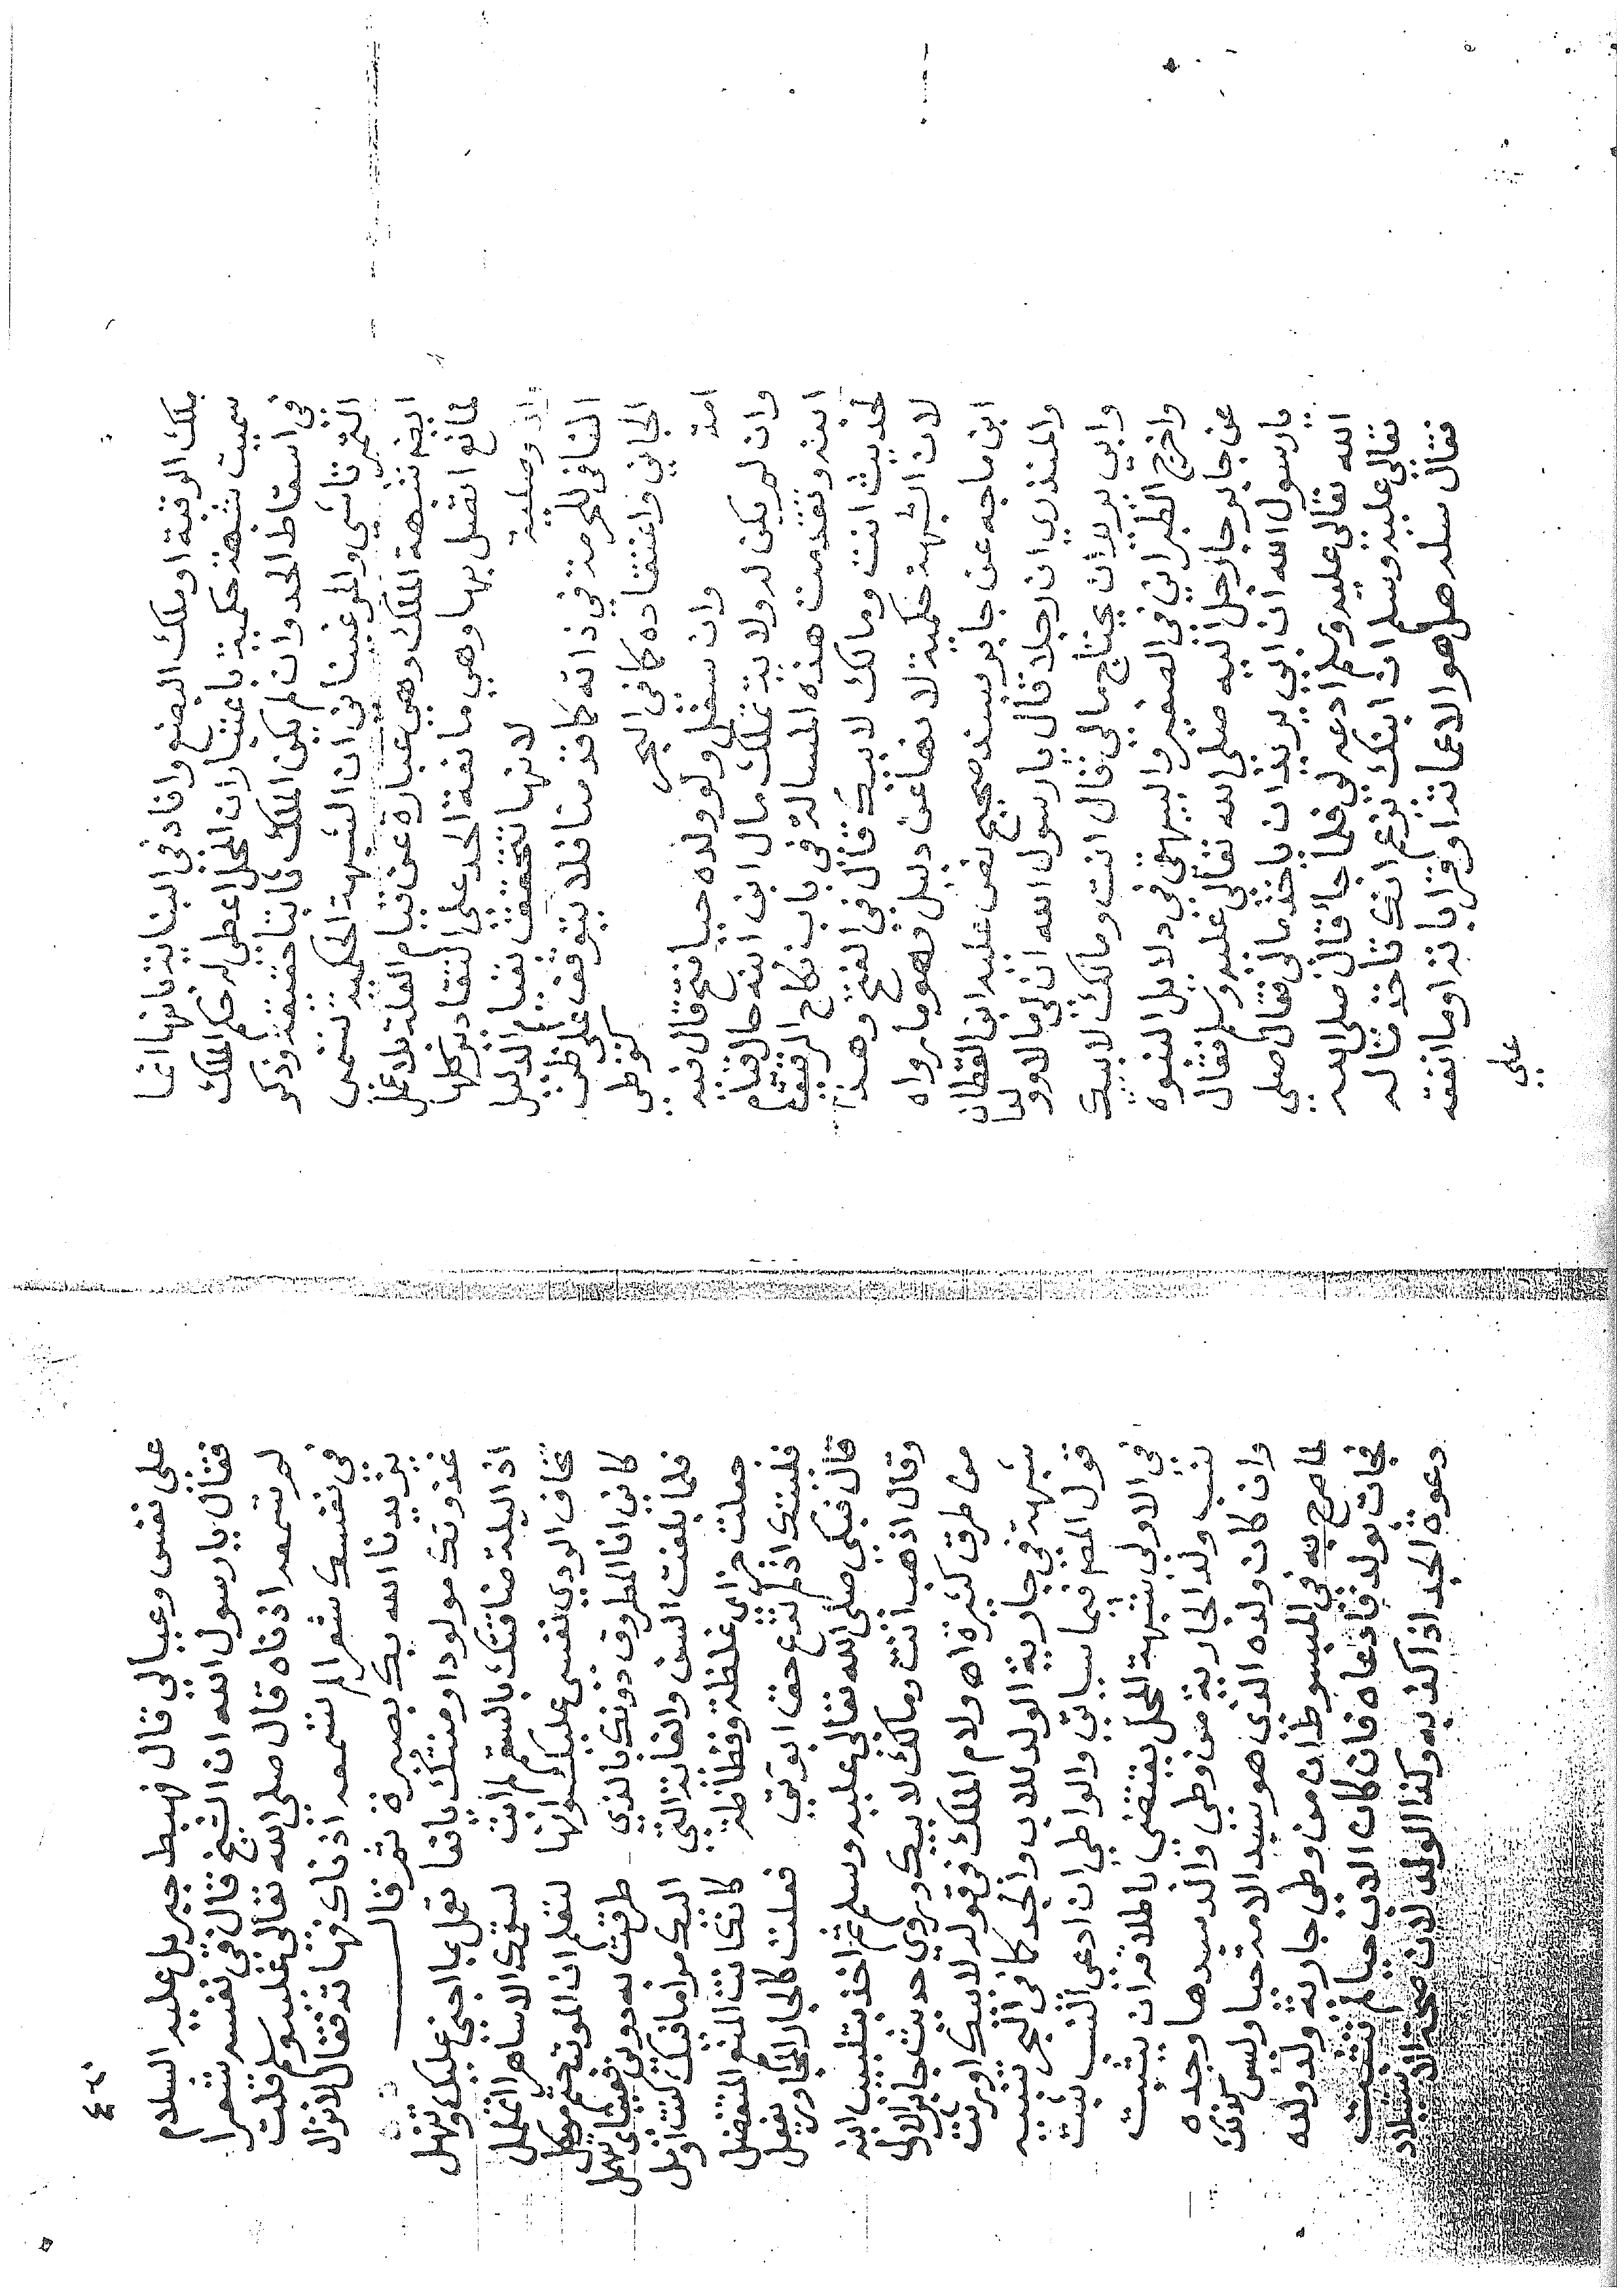 ملك الرقبة او ملك البضع وافاد في البناية بانها انما
سميت شبهة حكمية باعتبار ان المحل اعطى له حكم الملك
في اسقاط الحد وان لم يكن الملك ثابتا حقيقة وذكر
التمرتاشي والمرغيناني ان الشبهة الحكمية تسمى
ايضا شبهة الملك وهي عبارة عن قيام العلة بلا عمل
لمانع اتصل بها وهي مانعة الحد على التقادير كلها
وصلية لانها تتحقق بقيام الدليل
النافي للحرمة في ذاته كما قدمنا فلا يتوقف على ظن
الجاني واعتقاده كما في البحر كوطئ
امة وان سفل ولو ولده حيا فتح قال فيه
وان لم يكن له ولاية تملك مال ابن ابنه حال قيام
ابنه وتقدمت هذه المسالة في باب نكاح الرقيق
لحديث انت ومالك لابيك قال في الفتح وهذا
لان الشبهة حكمية لانها عن دليل وهو ما رواه
ابن ماجه عن جابر بسند صحيح نص عليه ابن القطان
والمنذري ان رجلا قال يارسول الله ان لي مالا وولدا
وابي يريد ان يجتاح مالي قال انت ومالك لابيك
واخرج الطبراني في الصغير والبيهقي في دلايل النبوة
عن جابر جاء رجل اليه صلى الله تعالى عليه وسلم فقال
يارسول الله ان ابي يريد ان ياخذ مالي فقال صلى
الله تعالى عليه وسلم ادعه لي فلما جاء قال صلى الله
تعالى عليه وسلم ان ابنك يزعم انك تاخذ ماله
فقال سله هل هو الا عماته او قراباته او ما انفقه
على
على نفسي وعيالي قال فهبط جبريل عليه السلام
فقال يارسول الله ان الشيخ قال في نفسه شعرا
لم تسمعه اذناه قال صلى الله تعالى عليه وسلم قلت
في نفسك شعرا لم تسمعه اذناك فهاته فقال لا تزال
يزيدنا الله بك بصيرة ثم قال
غذوتك مولودا ومنتك يافعا تعل بما اجني عليك وتنهل
اذا ليلة ضافتك بالسقم لم ابت لسقمك الا ساهرا اتململ
تخاف الردى نفسي عليك وانها لتعلم ان الموت حتم موكل
كاني انا المطروق دونك بالذي طرقت به دوني فعيناي تهمل
فلما بلغت السن والغاية التي اليك مرا ما فيك كنت اؤمل
جعلت جزاي غلظة وفظاظة كانك انت المنعم المتفضل
فليتك اذ لم ترع حق ابوتي فعلت كما الجار المجاور يفعل
قال فبكى صلى الله تعالى عليه وسلم ثم اخذ بتلبيب ابنه
وقال اذهب انت ومالك لابيك وروي حديث جابر الاول
من طرق كثيرة اه ولام الملك في قوله لابيك اورثت
شبهة في جارية الولد للاب والجد كما في البحر تنبيه
قول المصم فيما سياتي والواطي ان ادعى النسب يثبت
في الاولى شبهة المحل يقتضي باطلاقه ان يثبت
نسب ولد الجارية من وطي والد سيدها وجده
وان كان ولده الذي هو سيد الامة حيا وليس كذلك
لما صرح به في المبسوط ان من وطي جارية ولد ولده
فجات بولد فادعاه فان كان الاب حيا لم تثبت
دعوة الجد اذا كذبه وكذا الولد لان صحة الاستيلاد